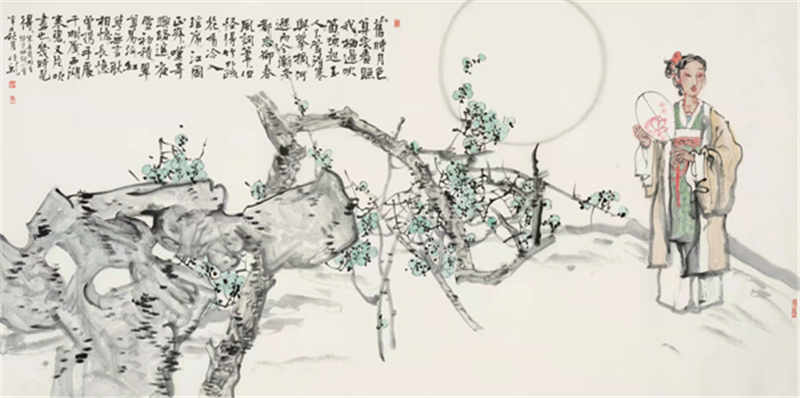 舊時月色
算幾番照
我梅邊吹
笛喚起玉
人不管清寒
與攀摘何
遜而今漸老
都忘卻春
風詞筆但
怪得竹外疏
花香冷入
瑤席江國
正寂寂嘆寄
與路遙夜
雪初積翠
尊易泣紅
萼無言耿
相憶長憶
曾攜手處
千樹壓西湖
寒碧又片片吹
盡也幾時見
得